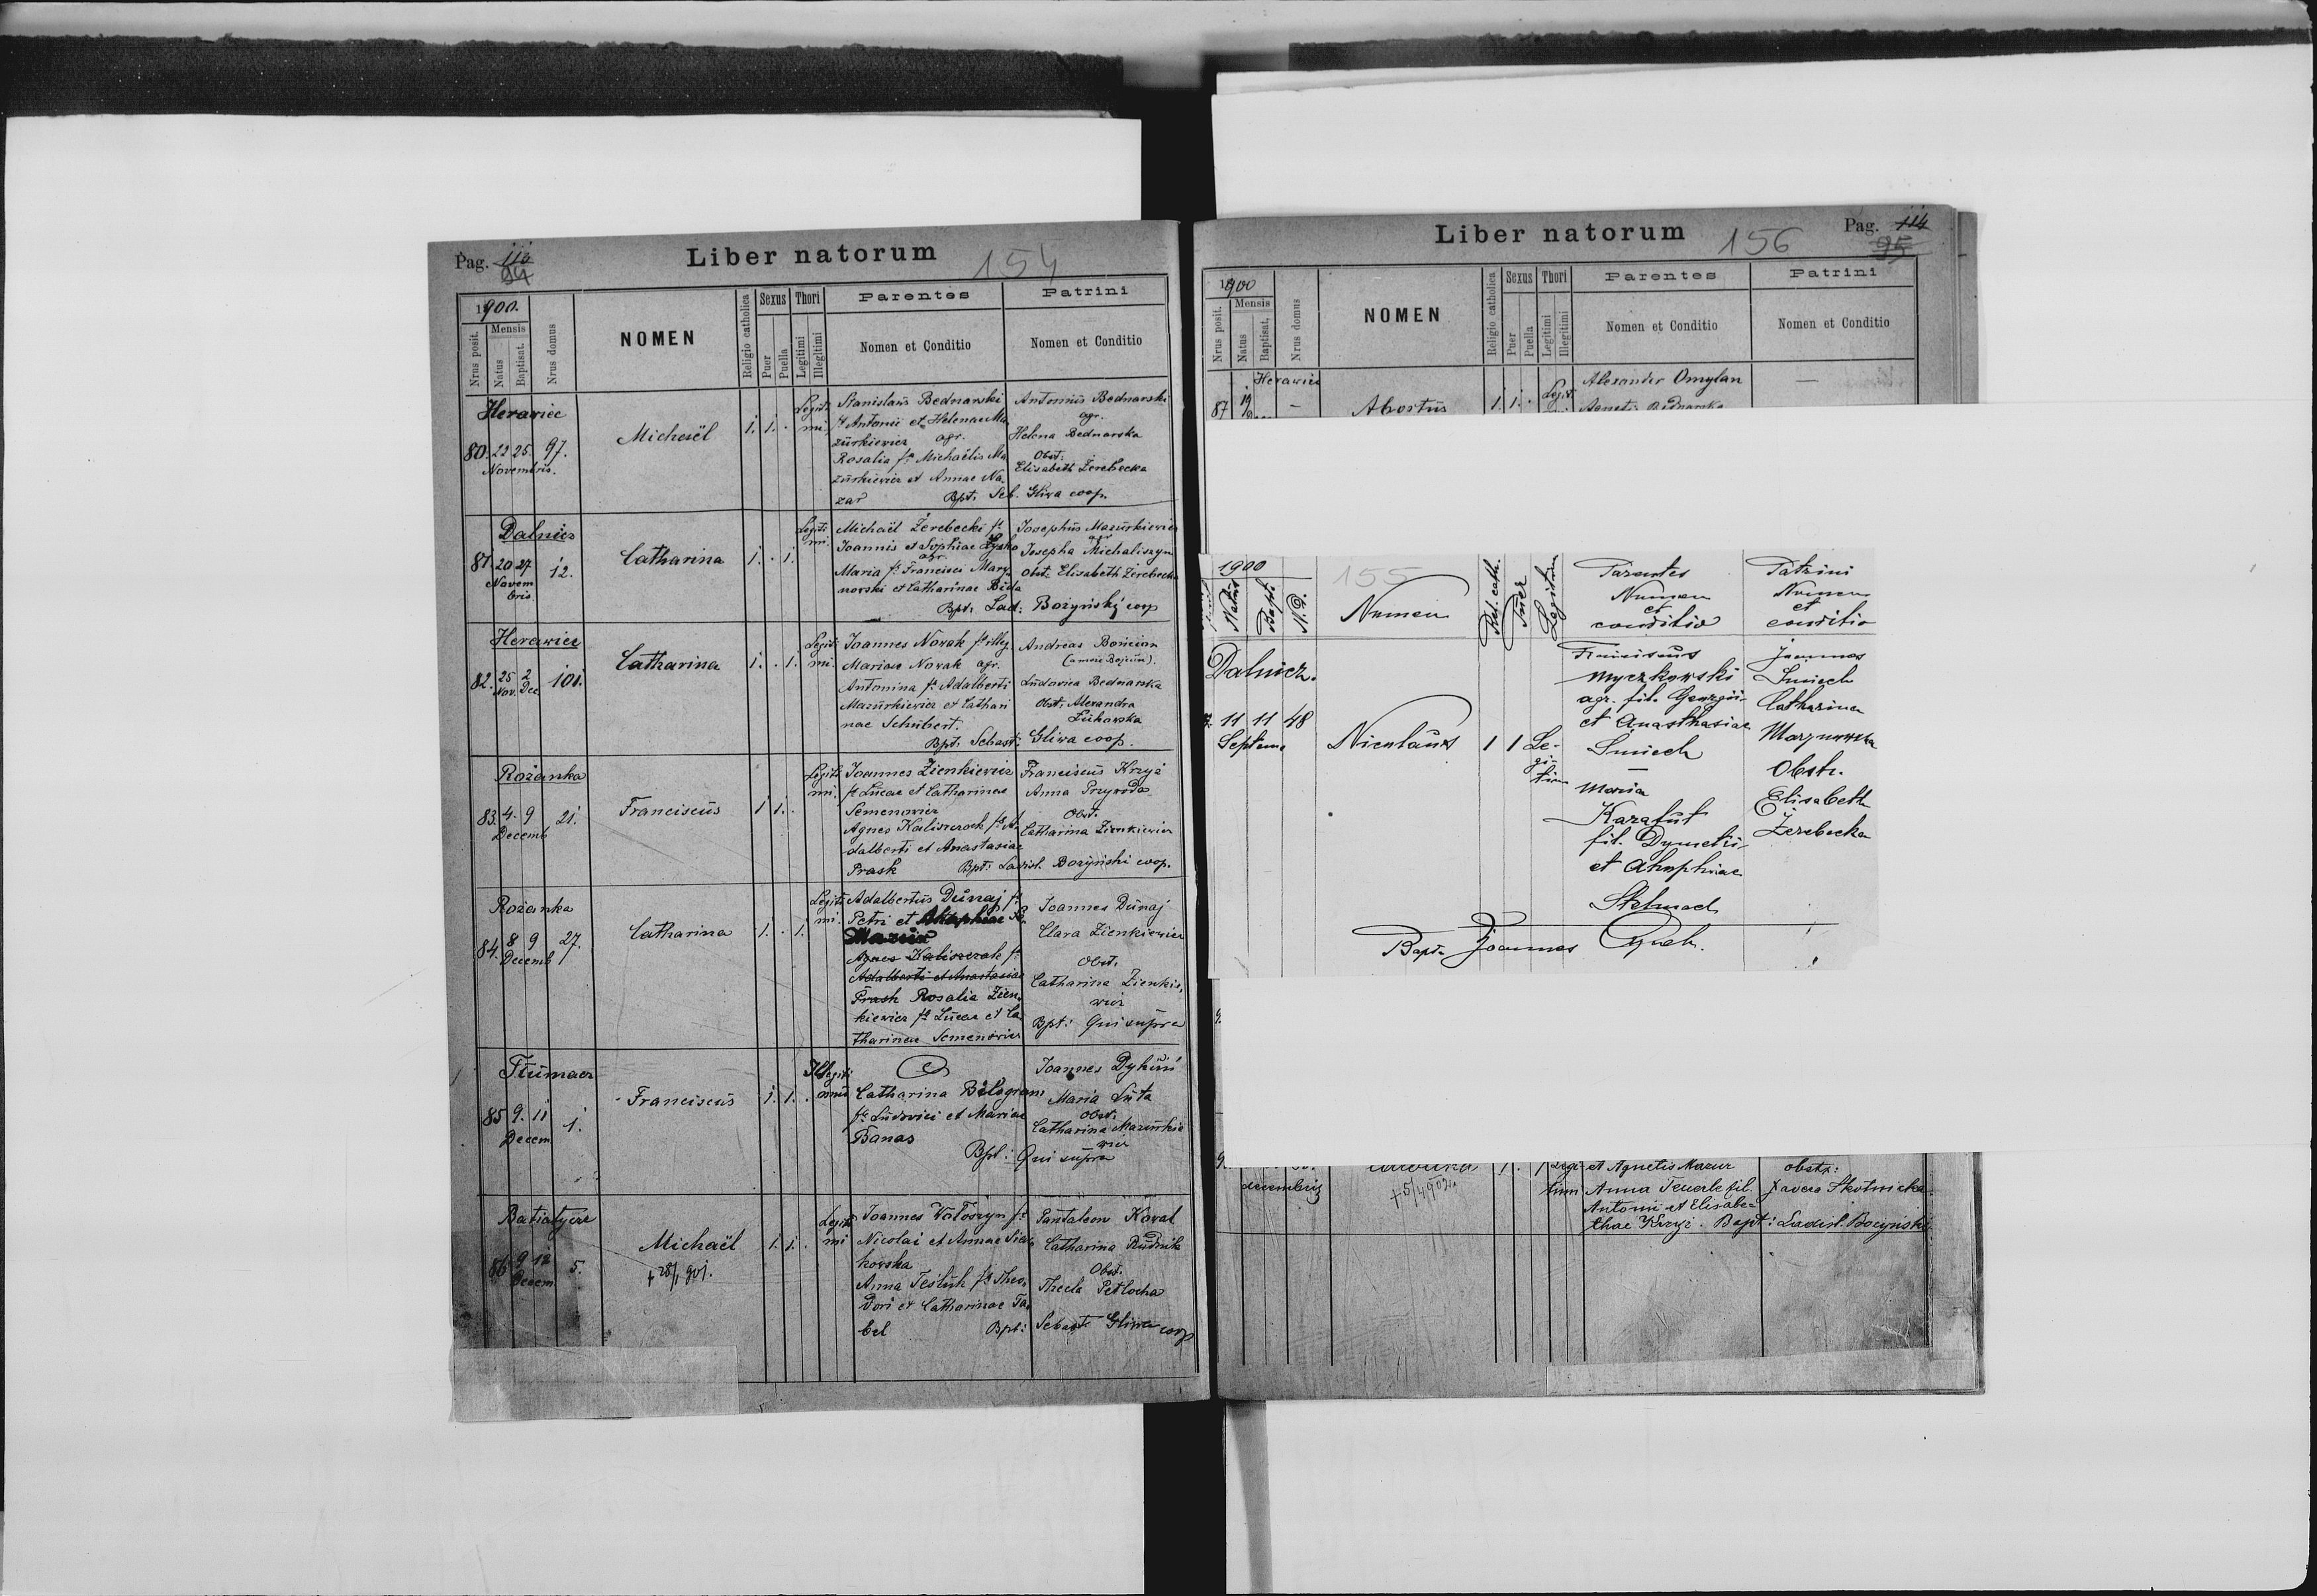 Pag. 113
94
Liber natorum
154
1900.
Nrus posit.
Mensis
Natus
Baptisat.
Nrus domus
NOMEN
Religio catholica
Sexus
Puer
Puella
Thori
Legitimi
Illegitimi
Parentes
Nomen et Conditio
Patrini
Nomen et Conditio
Herawiec
80. 22 25. 97.
Novembris.
Michaël
1. 1. .
Legiti
mi.
Stanislaus Bednarski
fs Antonii et Helenae Ma
zurkiewicz agr.
Rosalia fa Michaëlis Ma
zurkiewicz et Annae Na
zar
Antonius Bednarski
agr.
Helena Bednarska
Obst:
Elisabeth Żerebecka
Bpt. Seb. Gliwa coop.
Dalnicz
81. 20 27 12.
Novem
bris.
Catharina
1. . 1.
Legiti
mi.
Michaël Żerebecki fs
Joannis et Sophiae
agr.
Maria fa Francisci Mary
nowski et Catharinae Bida
Josephus Mazurkiewicz
agr.
Josepha Michaliszyn
Obst. Elisabeth Żerebecka
Bpt: Lad: Bożyński coop
Herawiec
82. 25 2 101.
Nov. Dec.
Catharina
1. . 1.
Legiti
mi.
Joannes Nowak fs illeg.
Mariae Nowak agr.
Antonina fa Adalberti
Mazurkiewicz et Cathari
nae Schubert.
Andreas
Ludovica Bednarska
Obst: Alexandra
Bpt. Sebast: Gliwa coop.
Rożanka
83. 4. 9 21.
Decemb
Franciscus
1 1. .
Legiti
mi.
Joannes Zienkiewicz
fs Lucae et Catharinae
Semenowicz
Agnes Kaliszczak fa A
dalberti et Anastasiae
Prask
Franciscus Krzyż
Anna Przywoda
Obst:
Catharina Zienkiewicz
Bpt: Ladisl. Bożyński coop.
Rożanka
84. 8 9 27.
Decemb
Catharina
1. . 1.
Legiti
mi.
Adalbertus Dunaj fs
Petri et
Agnes Kaliszczak fa
Adalberti et Anastasiae
Prask Rosalia Zien
kiewicz fa Lucae et Ca
tharinae Semenowicz
Joannes Dunaj
Clara Zienkiewicz
Obst.
Catharina Zienkie
wicz
Bpt: Qui supra
Tłumacz
85 9. 11 1.
Decem
Franciscus
1. 1. .
Illegiti
mus
Catharina Biłogram
fa Ludovici et Mariae
Banas
Joannes Dykun
Maria Luta
Obst.
Catharina Mazurkie
wicz
Bpt: Qui supra
Batiatycze
86 9 12 5.
Decem
Michaël
+ 28/1 901.
1. 1. .
Legiti
mi
Joannes Wołoszyn fs
Nicolai et Annae
kowska
Anna Tesluk fa Theo
dori et Catharinae Ta
bel
Pantaleon Kowal
Catharina Rudnik
Obst.
Thecla Petlocha
Bpt: Sebast. Gliwa coop
Liber natorum
156
Pag. 114
95
1900
Nrus posit.
Mensis
Natus
Baptisat.
Nrus domus
NOMEN
Religio catholica
Sexus
Puer
Puella
Thori
Legitimi
Illegitimi
Parentes
Nomen et Conditio
Patrini
Nomen et Conditio
Herawiec
87 19 –
Abortus
1. 1. .
Legit.
Alexander Omylan
Agnetis Bednarska
—
1900
155
Natus
Bapt.
N. D.
Nomen
Rel. cath.
Puer
Legitim
Parentes
Nomen
et
conditio
Patrini
Nomen
et
conditio
Dalnicz.
11 11 48
Septem.
Nicolaus
1 1 Le-
gi-
tim
Franciscus
Myczkowski
agr. fil. Georgii
et Anasthasiae
Smiech
—
Maria
Karafut
fil. Dymetri
et Ahaphiae
Stelmach
Joannes
Smiech
Catharina
Marynowska
Obstr.
Elisabeth
Żerebecka
Bapt. Joannes
decembris
+ 5/4 902.
1 . 1
Legi-
tim
et Agnetis Mazur
Anna Teuerle fil.
Antonii et Elisabe
thae Krzyż.
obstr:
Xavera Skotnicka
Bapt: Ladisl. Bożyński